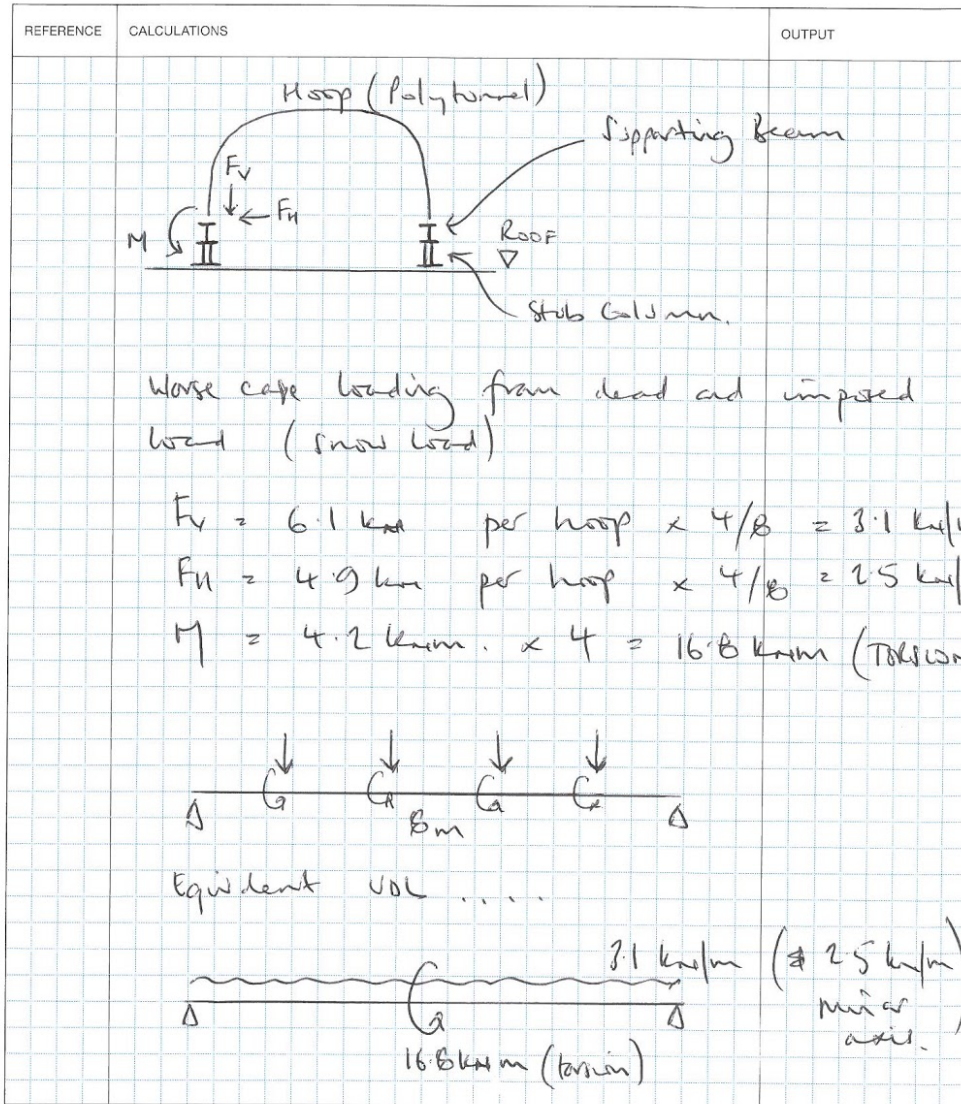 REFERENCE CALCULATIONS OUTPUT
Hoop (Polytunnel)
Supporting Beam
Fv
FH
M
ROOF
Stub Column.
Worse case loading from dead and imposed
load (snow load)
Fv = 6.1 kN per hoop x 4/8 = 3.1 kN/
FH = 4.9 kN per hoop x 4/8 = 2.5 kN/
M = 4.2 kNm. x 4 = 16.8 kNm (TORSION
8m
Equivlent UDL .....
3.1 kN/m (& 2.5 kN/m)
minor
axis.
16.8 kNm (torsion)